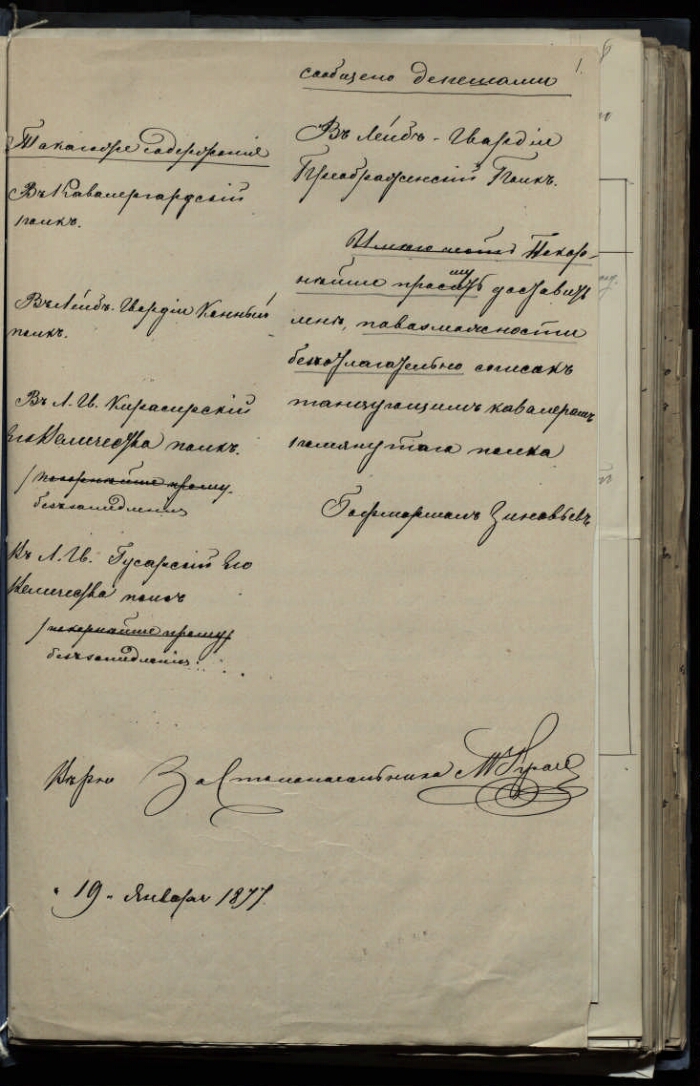 1.
сообщено депешами
Такого же содержанія
Въ Кавалергардскій
полкъ.
Въ Лейбъ-Гвардіи Конный
полкъ.
Въ Л. Гв. Кирасирскій
Его Величества полкъ.
/покорнѣйше прошу/
безъ замедленія
Въ Л. Гв. Гусарскій Его
Величества полкъ
/покорнѣйше прошу/
безъ замедленія
Въ Лейбъ-Гвардіи
Преображенскій Полкъ.
Имѣю честь Покор-
нѣйше просить шу доставить
мнѣ, по возможности
безотлагательно списокъ
танцующимъ кавалерамъ
помянутаго полка
Гофмаршалъ Зиновьевъ
Вѣрно За Столоначальника
"19" Января 1877.